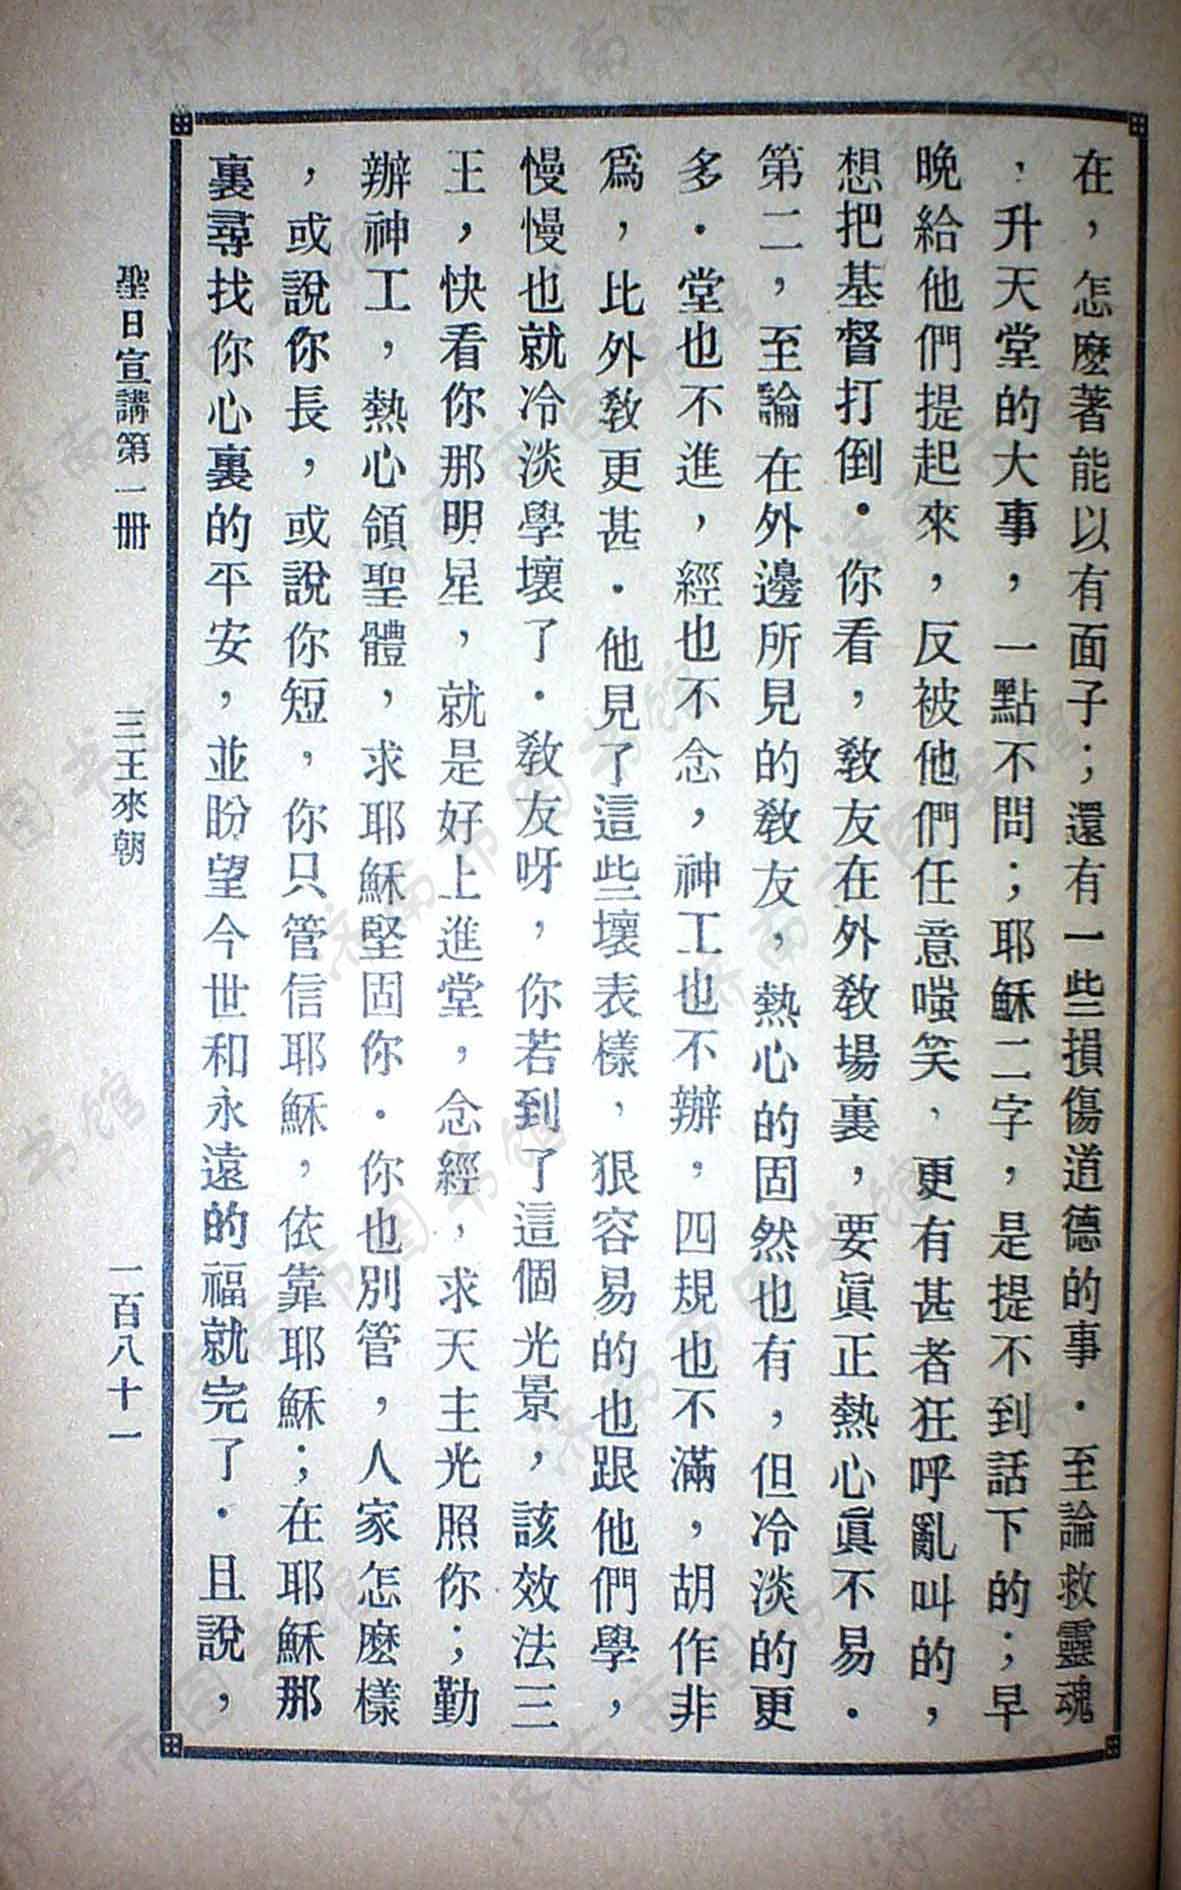 在，怎麽著能以有面子；還有一些損傷道德的事．至論救靈魂
，升天堂的大事，一點不問；耶穌二字，是提不到話下的；早
晚給他們提起來，反被他們任意嗤笑，更有甚者狂呼亂叫的，
想把基督打倒．你看，敎友在外敎場裏，要眞正熱心眞不易．
第二，至論在外邊所見的敎友，熱心的固然也有，但冷淡的更
多．堂也不進，經也不念，神工也不辦，四規也不滿，胡作非
爲，比外敎更甚．他見了這些壞表樣，狠容易的也跟他們學，
慢慢也就冷淡學壞了．敎友呀，你若到了這個光景，該效法三
王，快看你那明星，就是好上進堂，念經，求天主光照你；勤
辦神工，熱心領聖體，求耶穌堅固你．你也別管，人家怎麽樣
，或說你長，或說你短，你只管信耶穌，依靠耶穌；在耶穌那
裏尋找你心裏的平安，並盼望今世和永遠的福就完了．且說，
聖日宣講第一册　三王來朝　一百八十一
济南市图书馆